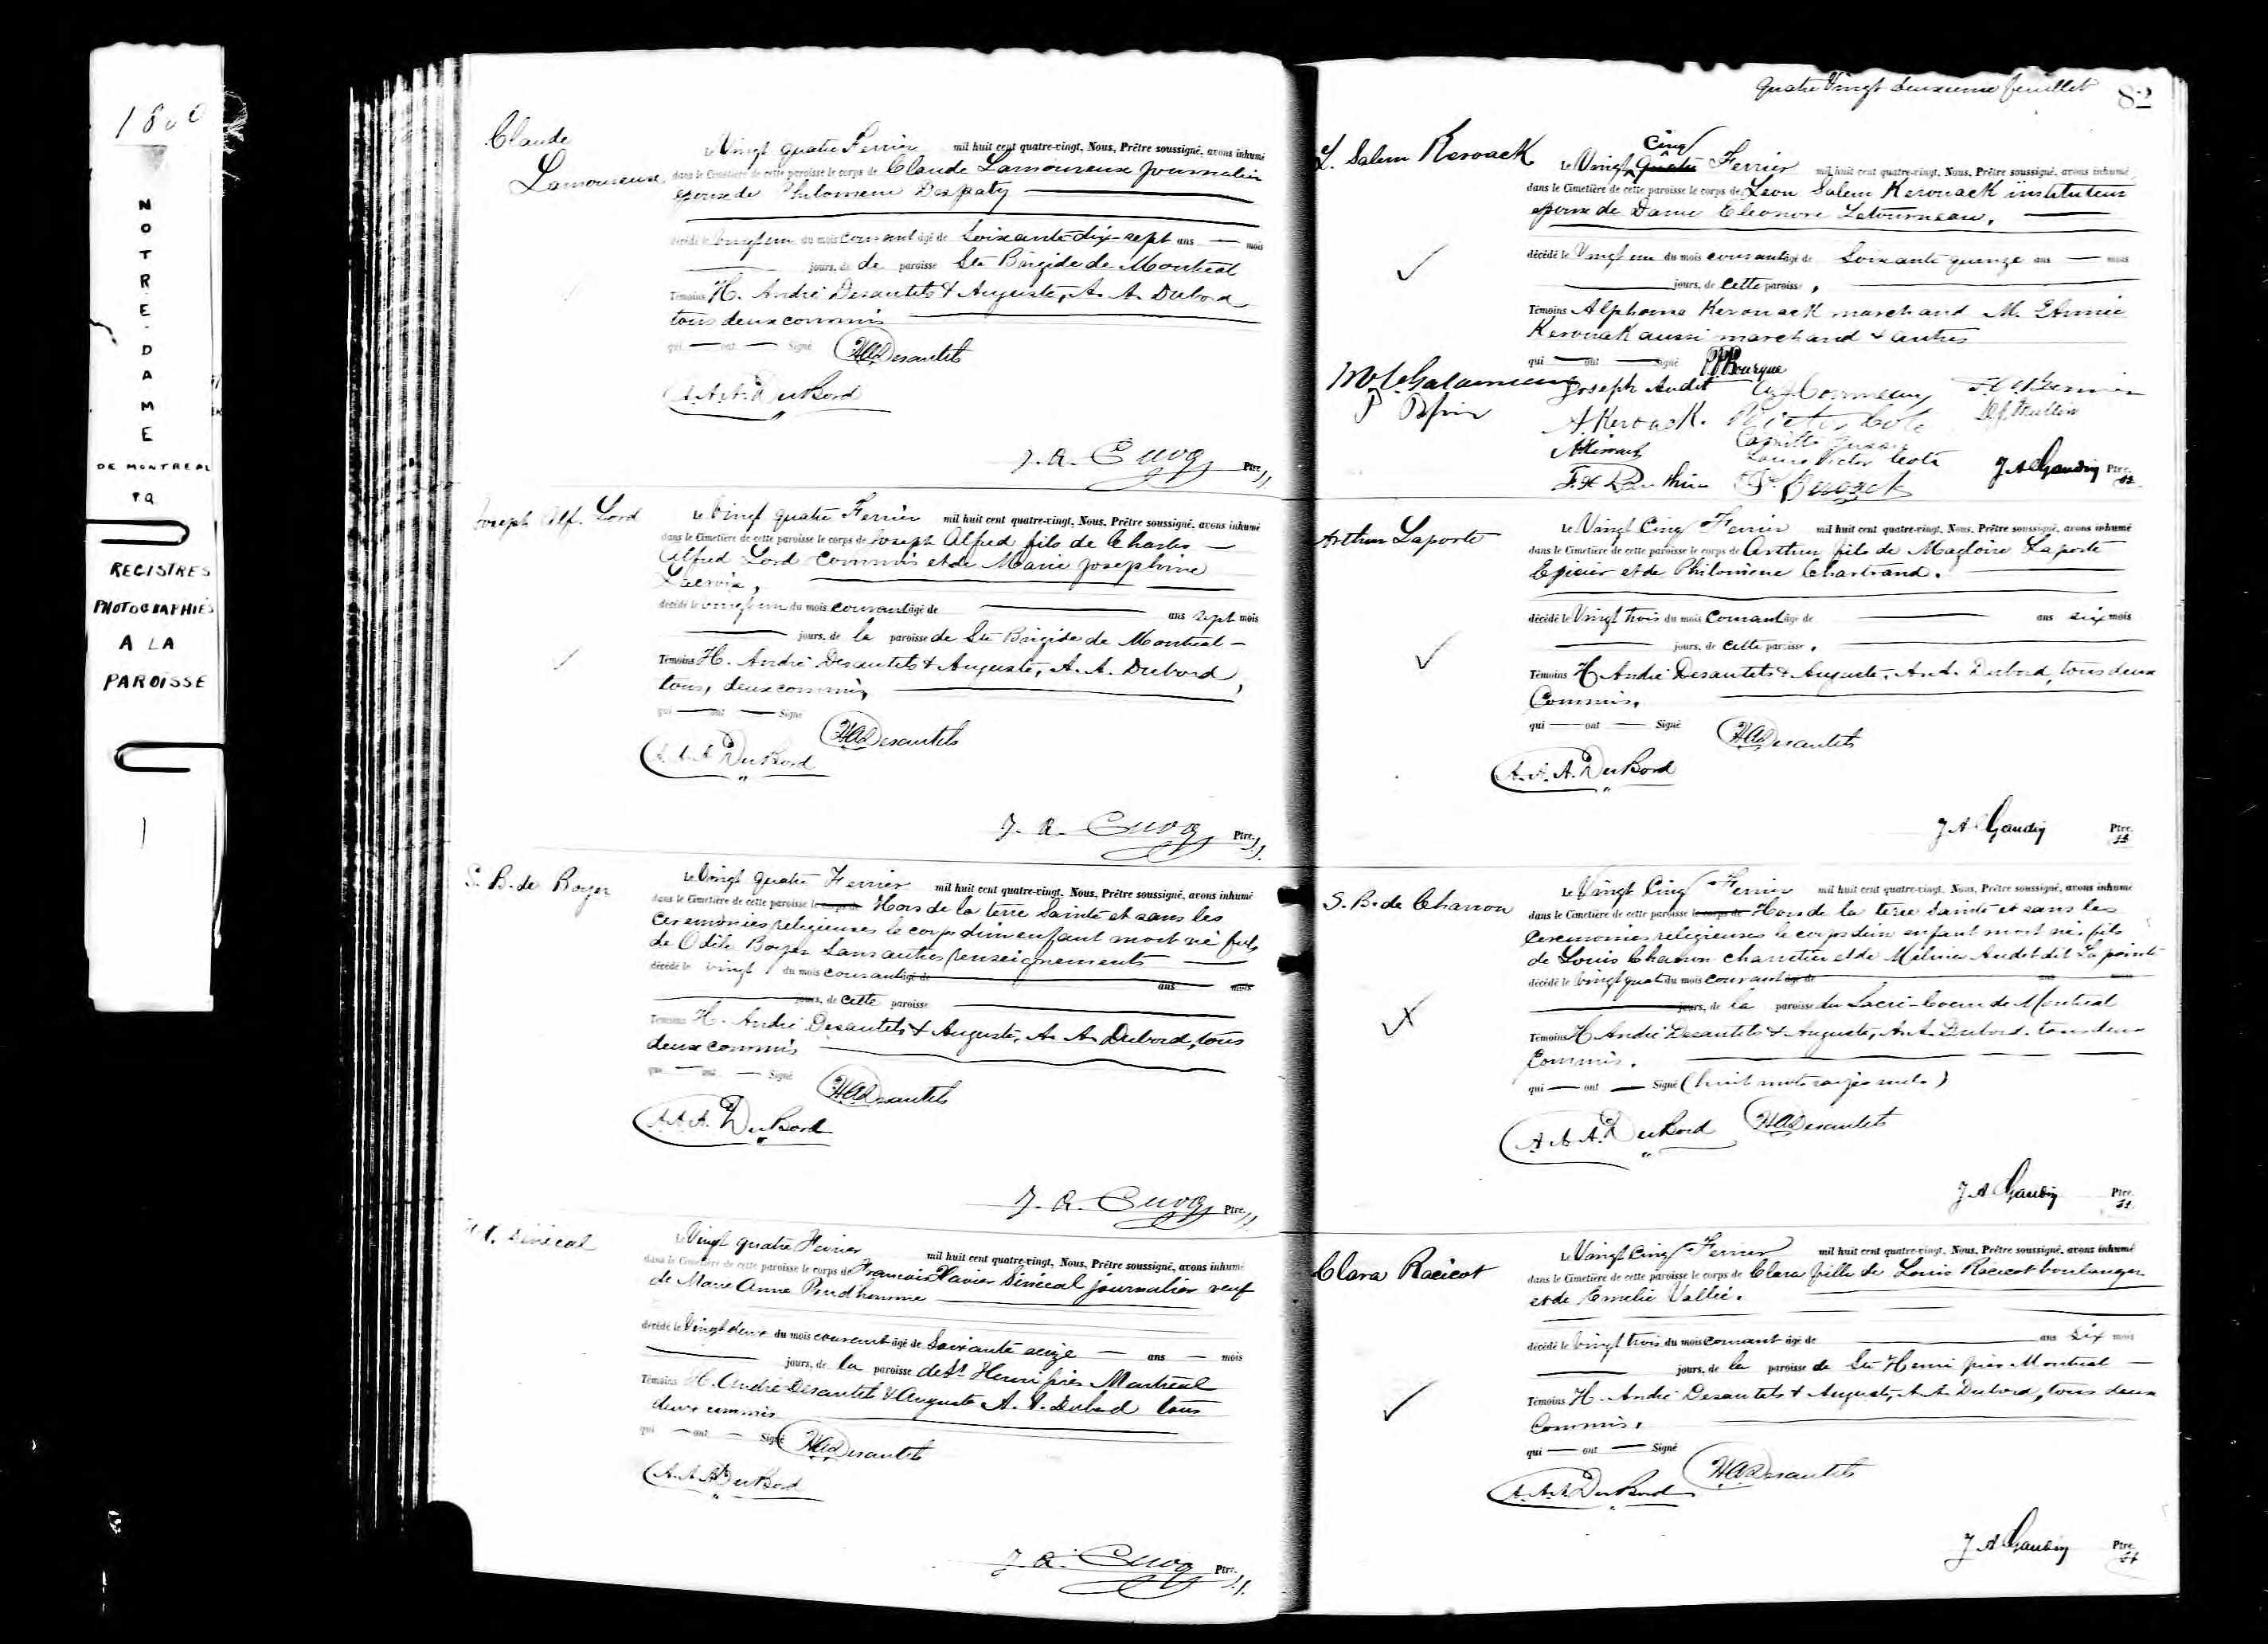 1880
NOTRE-DAME
DE MONTREAL
REGISTRES
PHOTOGRAPHIÉS
A LA
PAROISSE
1
Claude
Lamoureux
Le Vingt quatre Fevrier mil huit cent quatre-vingt, Nous, Prêtre soussigné, avons inhumé
dans le Cimetière de cette paroisse le corps de Claude Lamoureux journalier
epoux de Philomene Despaty
décédé le vingt un du mois courant âgé de Soixante dix-sept ans mois
jours, de de paroisse Ste Brigide de Montréal
Témoins H. André Desautels & Auguste, A. A. Dubord
tous deux commis
qui ont Signé HADesautels
A.A.A. DuBord
J. A. Cuoq Ptre
Joseph Alf. Lord
Le Vingt quatre Fevrier mil huit cent quatre-vingt, Nous, Prêtre soussigné, avons inhumé
dans le Cimetière de cette paroisse le corps de Joseph Alfred fils de Charles
Alfred Lord commis et de Marie Josephine
Lacroix,
décédé le vingt un du mois courant âgé de ans sept mois
jours, de la paroisse de Ste Brigide de Montréal
Témoins H. André Desautels & Auguste, A. A. Dubord,
tous, deux commis
qui ont Signé HADesautels
A.A.A. DuBord
J. A. Cuoq Ptre
S. B. de Boyer
Le Vingt quatre Fevrier mil huit cent quatre-vingt, Nous, Prêtre soussigné, avons inhumé
dans le Cimetière de cette paroisse le corps de Hors de la terre Sainte et sans les
ceremonies religieuses le corps d'un enfant mort né fils
de Odile Boyer Sans autres renseignements
décédé le vingt du mois courant âgé de ans mois
jours, de cette paroisse
Témoins H. André Desautels & Auguste, A. A. Dubord, tous
deux commis
qui ont Signé HADesautels
A.A.A. DuBord
J. A. Cuoq Ptre
Sénécal
Le Vingt quatre Fevrier mil huit cent quatre-vingt, Nous, Prêtre soussigné, avons inhumé
dans le Cimetière de cette paroisse le corps de Francois Xavier Sénécal journalier veuf
de Marie Anne Prudhomme
décédé le Vingt deux du mois courant âgé de Soixante seize ans mois
jours, de la paroisse de St Henri près Montréal
Témoins H. André Desautels & Auguste A. A. Dubord tous
deux commis
qui ont Signé HADesautels
A.A.A. DuBord
J. A. Cuoq Ptre
Quatre Vingt deuxieme feuillet 82
L. Salem Kerouack
cinq
Le Vingt Quatre Fevrier mil huit cent quatre-vingt, Nous, Prêtre soussigné, avons inhumé
dans le Cimetière de cette paroisse le corps de Leon Salem Kerouack instituteur
epoux de Dame Eleonore Letourneau,
décédé le Vingt un du mois courant âgé de Soixante quinze ans mois
jours, de cette paroisse,
Témoins Alphonse Kerouack marchand M.
Kerouack aussi marchand & autres
qui ont Signé Bourque
Joseph Audet
A. Kerouack. Victor Cote
Louis Victor
J A Gaudin Ptre
Arthur Laporte
Le Vingt Cinq Fevrier mil huit cent quatre-vingt, Nous, Prêtre soussigné, avons inhumé
dans le Cimetière de cette paroisse le corps de Arthur fils de Magloire Laporte
Epicier et de Philomene Chartrand.
décédé le Vingt trois du mois Courant âgé de ans six mois
jours, de cette paroisse,
Témoins H. André Desautels & Auguste, A. A. Dubord, tous deux
Commis.
qui ont Signé HADesautels
A.A.A. DuBord
J A Gaudin Ptre
S. B. de Charron
Le Vingt Cinq Fevrier mil huit cent quatre-vingt, Nous, Prêtre soussigné, avons inhumé
dans le Cimetière de cette paroisse le corps de Hors de la terre Sainte et sans les
Ceremonies religieuses le corps d'un enfant mort né. fils
de Louis Charron charretier et de Mélina Audet dit Lapointe
décédé le vingt quat du mois courant âgé de ans mois
jours, de la paroisse du Sacré-Coeur de Montreal
Témoins H. André Desautels & Auguste, A. A. Dubord. tous deux
Commis.
qui ont Signé (huit mots rayés nuls)
A.A.A. DuBord HADesautels
J A Gaudin Ptre
Clara Racicot
Le Vingt Cinq Fevrier mil huit cent quatre-vingt, Nous, Prêtre soussigné, avons inhumé
dans le Cimetière de cette paroisse le corps de Clara fille de Louis Racicot boulanger
et de Emelie Vallée.
décédé le vingt trois du mois courant âgé de ans Six mois
jours, de la paroisse de St Henri près Montreal
Témoins H. André Desautels & Auguste, A. A. Dubord, tous deux
Commis,
qui ont Signé HADesautels
A.A.A. DuBord
J A Gaudin Ptre